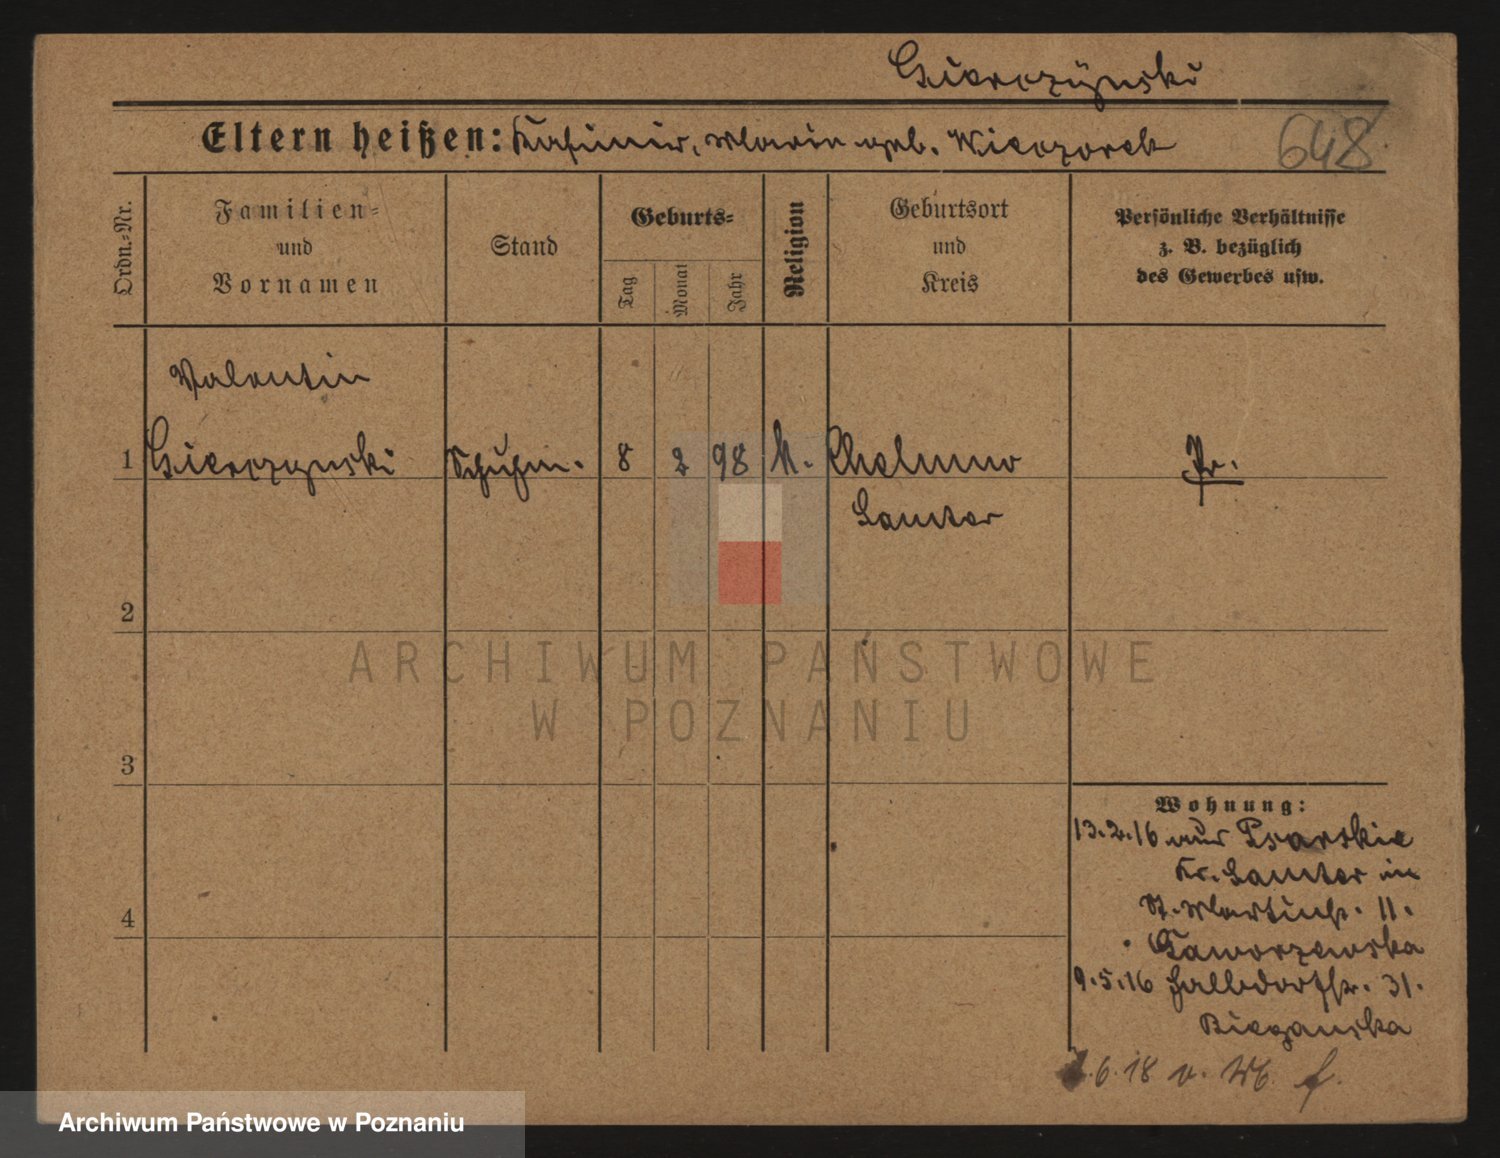 Gierczyński
Eltern heißen: Kasimir, Maria geb. Wieczorek
648
Ordn.-Nr.
Familien-
und
Vornamen
Stand
Geburts-
Tag
Monat
Jahr
Religion
Geburtsort
und
Kreis
Persönliche Verhältnisse
z. B. bezüglich
des Gewerbes usw.
Valentin
1 Gierczynski Schuhm. 8 2 98 k. Chelmno Pr.
Samter
2
3
4
Wohnung:
13.2.16 aus Psarskie
Kr. Samter in
St. Martinstr. 11.
Jaworzewska
9.5.16 Halbdorfstr. 31.
Biezanska
6.18 v.
ARCHIWUM PAŃSTWOWE
W POZNANIU
Archiwum Państwowe w Poznaniu